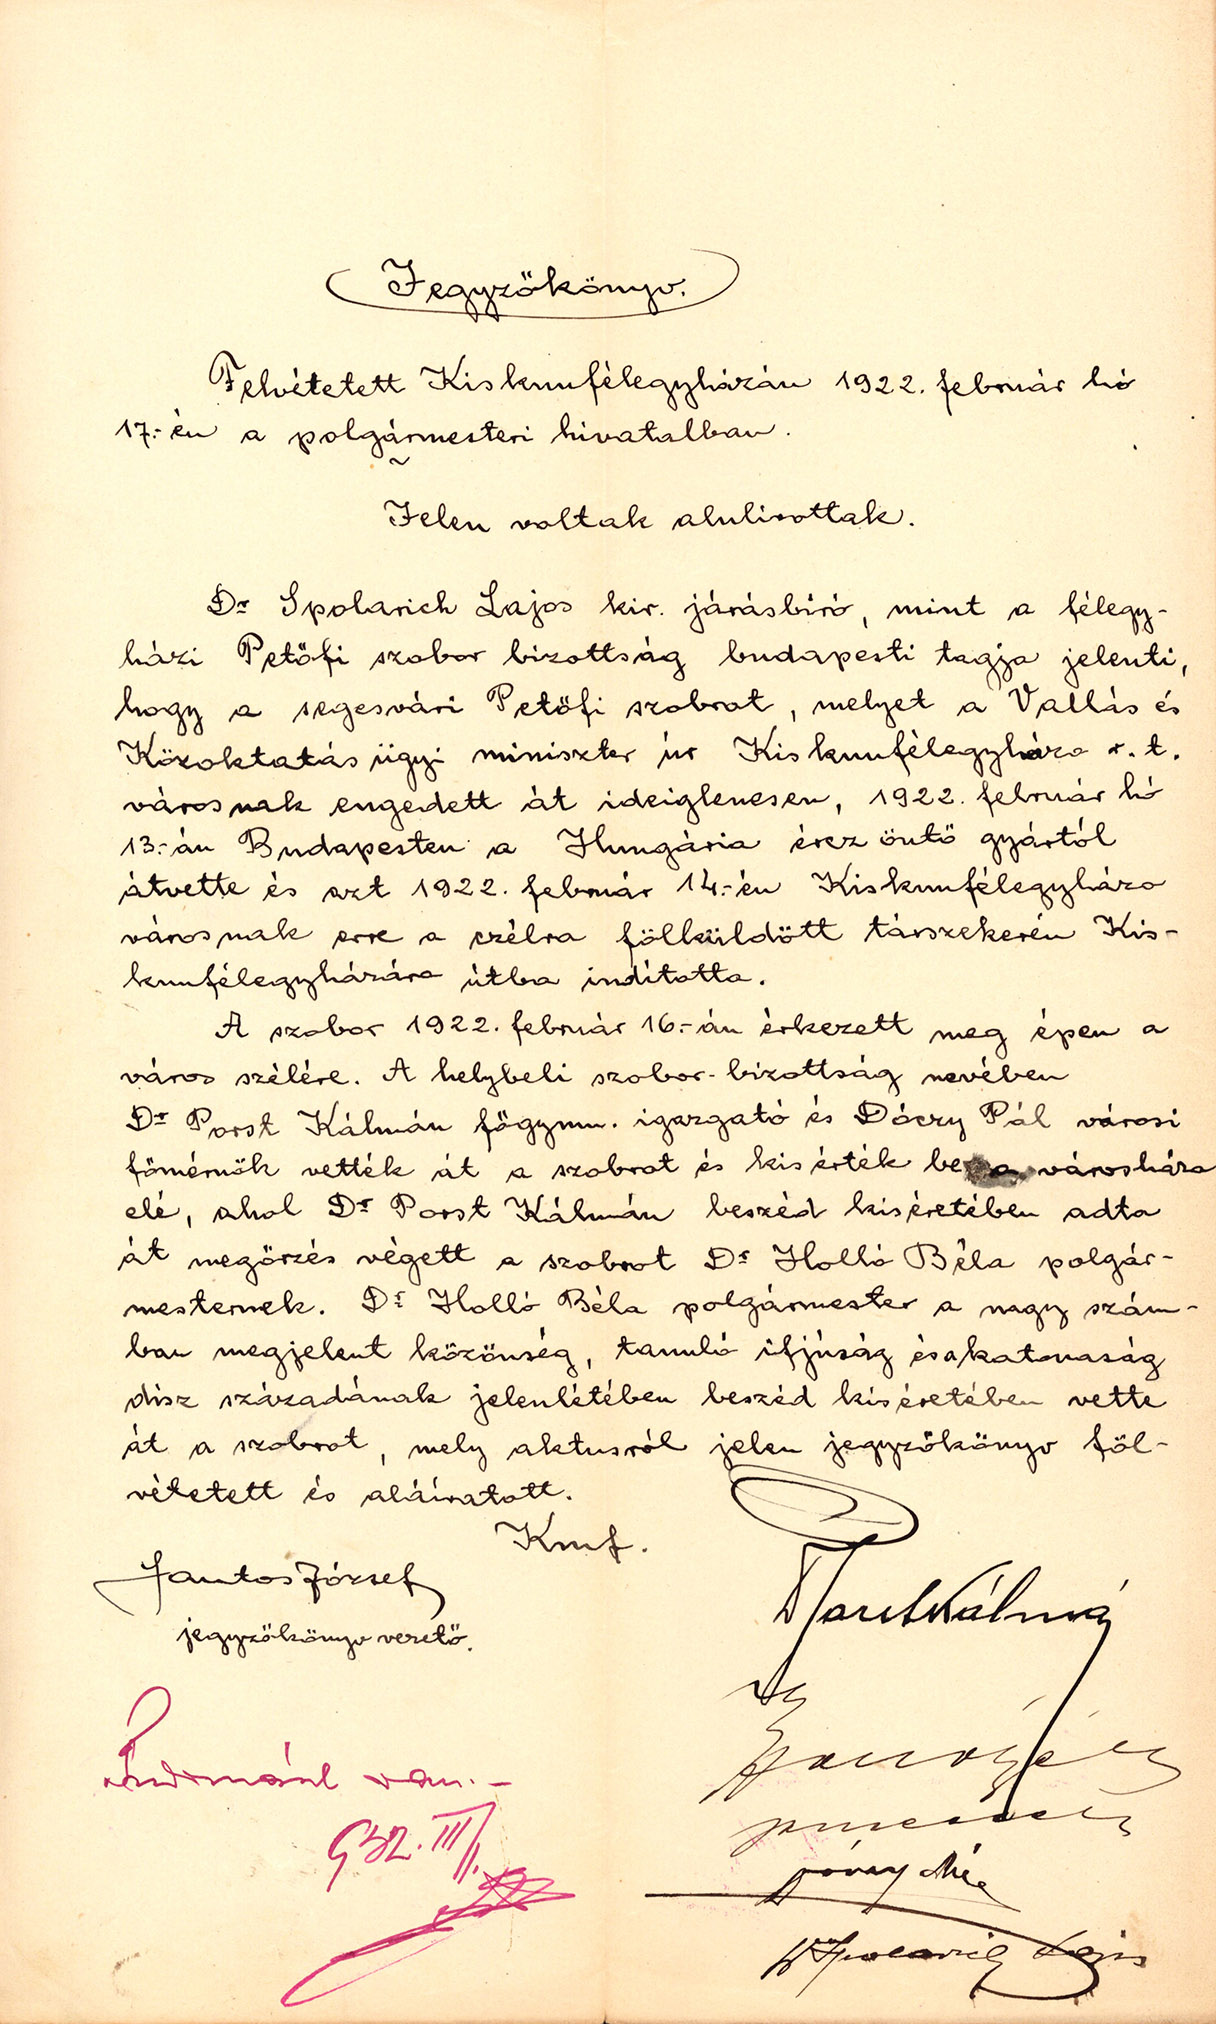 Jegyzőkönyv.
Felvétetett Kiskunfélegyházán 1922. február hó
17.-én a polgármesteri hivatalban.
Jelen voltak alulirottak.
Dr Spolarich Lajos kir. járásbíró, mint a félegy-
házi Petőfi szobor bizottság budapesti tagja jelenti,
hogy a segesvári Petőfi szobrot, melyet a Vallás és
Közoktatásügyi miniszter úr Kiskunfélegyháza r. t.
városnak engedett át ideiglenesen, 1922. február hó
13.-án Budapesten a Hungária ércz öntő gyártól
átvette és azt 1922. február 14.-én Kiskunfélegyháza
városnak erre a czélra fölküldött társzekerén Kis-
kunfélegyházára útba indította.
A szobor 1922. február 16.-án érkezett meg épen a
város szélére. A helybeli szobor-bizottság nevében
Dr Porst Kálmán főgymn. igazgató és Dóczy Pál városi
főmérnök vették át a szobrot és kisérték be a városháza
elé, ahol Dr Porst Kálmán beszéd kiséretében adta
át megőrzés végett a szobrot Dr Holló Béla polgár-
mesternek. Dr Holló Béla polgármester a nagy szám-
ban megjelent közönség, tanuló ifjúság és a katonaság
disz századának jelenlétében beszéd kiséretében vette
át a szobrot, mely aktusról jelen jegyzőkönyv föl-
vétetett és aláíratott.
Kmf.
Jantos József
jegyzőkönyv vezető.
Porst Kálmán
Dr
Holló Béla
polgármester
Dóczy Pál
Dr Spolarich Lajos
Tudomásul van.-
932. III/1.